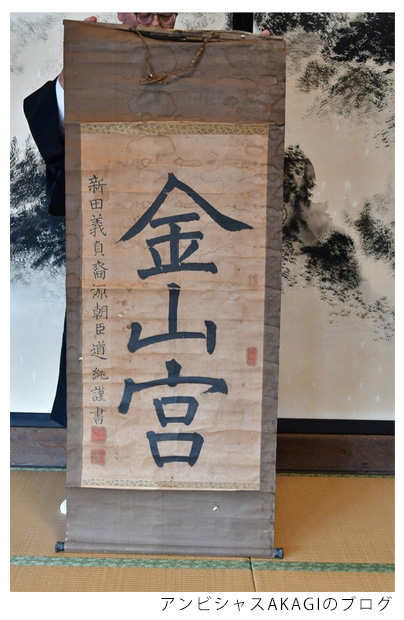 金山宮
新田義貞裔源朝臣道純謹書
アンビシャスAKAGIのブログ